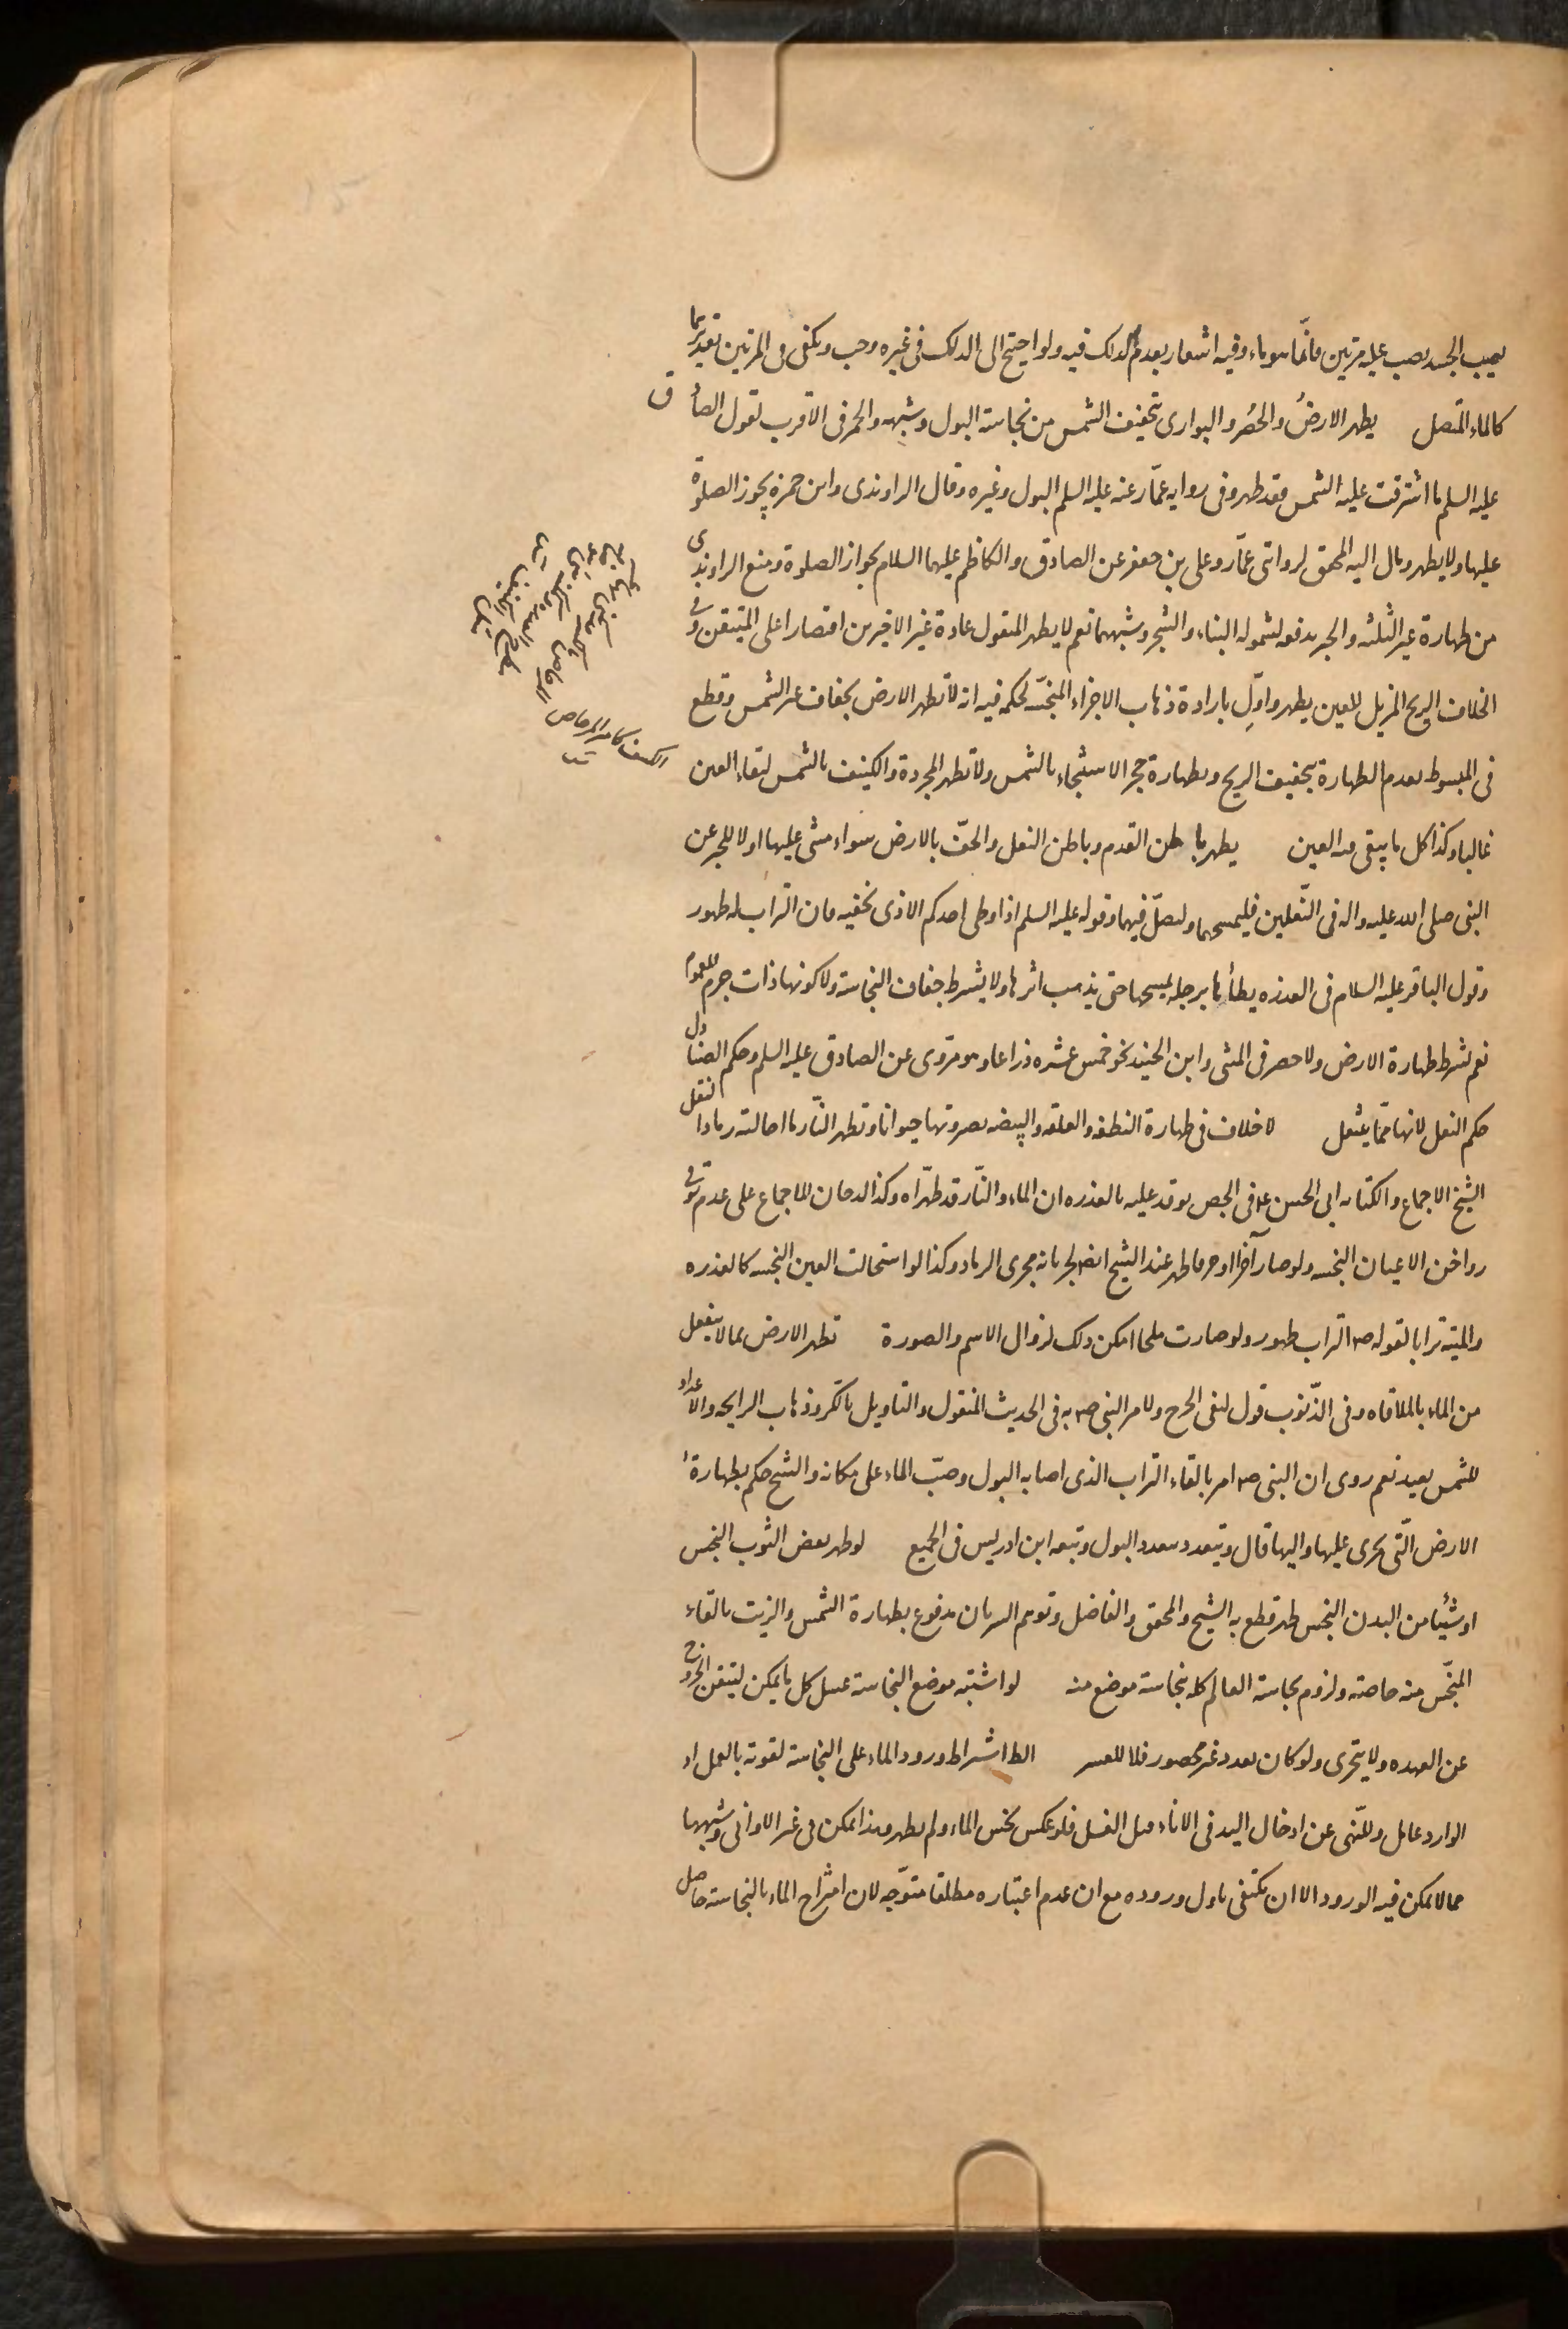 يصيب الجسد يصب عليه مرتين فانما هو ماء وفيه اشعار بعدم الدلك فيه ولو احتيج الى الدلك في غيره وجب ويكفى فى المرتين تقديرهما
كالماء المتصل يطهر الارضُ والحصُر والبوارى بتجفيف الشمس من نجاسة البول وشبهه والخمر فى الاقرب لقول الصادق
عليه السلم ما اشرقت عليه الشمس فقد طهر وفى رواية عمّار عنه عليه السلم البول وغيره وقال الراوندى وابن حمزه يجوز الصلوة
عليها ولا يطهر ومال اليه المحقق لروايتى عمّار وعلى بن جعفر عن الصادق والكاظم عليهما السلام بجواز الصلوة ومنع الراوندى
من طهارة غير الثلثه والخبر يدفعه لشموله البناء والشجر وشبههما نعم لا يطهر المنقول عادة غير الاخيرين اقتصارا على المتيقن وفى
الخلاف الريح المزيل للعين يطهر واوّل بارادة ذهاب الاجزاء المنجّسه لحكمه فيه انه لا تطهر الارض بجفاف غير الشمس وقطع
فى المبسوط بعدم الطهارة بتجفيف الريح وبطهارة حجر الاستنجاء بالشمس ولا تطهر المجردة والكنيف بالشمس لبقاء العين
غالبا وكذا كل ما يبقى فيه العين يطهر باطن القدم وباطن النعل والخفّ بالارض سواء مشى عليها او لا للخبر عن
النبى صلى الله عليه واله فى النّعلين فليمسحهما وليصلّ فيهما وقوله عليه السلم اذا وطى احدكم الاذى بخفيه فان التراب له طهور
وقول الباقر عليه السلام فى العذره يطأها برجله يمسحها حتى يذهب اثرها ولا يشترط جفاف النجاسة ولا كونها ذات جرم للعموم
نعم يشترط طهارة الارض ولا حصر فى المشى وابن الجنيد نحو خمس عشره ذراعا وهو مروى عن الصادق عليه السلم وحكم الصنادل
حكم النعل لانها ممّا ينتعل لا خلاف فى طهارة النطفه والعلقه والبيضه بصيرورتها حيوانا وتطهر النّار ما احالته رمادا لنقل
الشيخ الاجماع ولكتابه ابى الحسن ع فى الجص يوقد عليه بالعذره ان الماء والنّار قد طهّراه وكذا الدخان للاجماع على عدم توقى
دواخن الاعيان النجسه ولو صار آجرا او خزفا طهر عند الشيخ ايضا لجريانه مجرى الرماد وكذا لو استحالت العين النجسه كالعذره
والميته ترابا لقوله ص التراب طهور ولو صارت ملحا امكن ذلك لزوال الاسم والصورة تطهر الارض بما لا ينفعل
من الماء بالملاقاه وفى الذّنوب قول لنفى الحرج ولامر النبى ص به فى الحديث المنقول والتاويل بالكر وذهاب الرايحه والاعداد
للشمس بعيد نعم روى ان النبى ص امر بالقاء التراب الذى اصابه البول وصبّ الماء على مكانه والشيخ حكم بطهارة
الارض الّتى يجرى عليها واليها قال ويتعدد بتعدد البول وتبعه ابن ادريس فى الجميع لو طهر بعض الثوب النجس
او شيئا من البدن النجس طهر قطع به الشيخ والمحقق والفاضل وتوهم السريان مدفوع بطهارة الشمس والزيت بالقاء
المنجّس منه خاصته ولزوم نجاسة العالم كله بنجاسة موضع منه لو اشتبه موضع النجاسة غسل كل ما يمكن ليتيقن الخروج
عن العهده ولا يتحرى ولو كان بعدد غير محصور فلا للعسر الظ اشتراط ورود الماء على النجاسة لقوته بالعمل اذ
الوارد عامل وللنّهى عن ادخال اليد فى الاناء قبل الغسل فلو عكس نجس الماء ولم يطهر وهذا ممكن فى غير الاوانى وشبهها
مما لا يمكن فيه الورود الا ان يكتفى باول وروده مع ان عدم اعتباره مطلقا متوّجه لان امتزاج الماء بالنجاسة حاصل